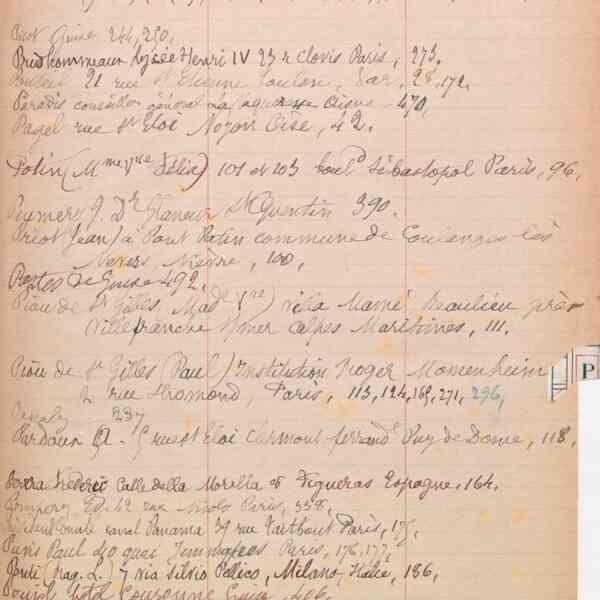 Guise 244, 250.
Prudhommeaux Lycée Henri IV 23 r Clovis Paris, 273.
21 rue St Etienne Toulon, Var, 28, 172.
Paradis conseiller général Aisne 470,
Pagel rue St Eloi Noyon Oise, 42.
Potin (Mme vve Félix) 101 et 103 bould Sébastopol Paris, 96,
J. Dr Glaneur St Quentin 390.
Priot (Jean) à Pont Patin commune de Coulanges lès
Nevers, Nièvre, 100,
Postes de Guise 492.
Piou de St Gilles, Made Vve) villa Mamé, Beaulieu près
Villefranche s/mer Alpes Maritimes, 111.
Piou de St Gilles (Paul) Institution Roger Momenheim
2 rue Dromond, Paris, 113, 124, 169, 271, 296,
237
Pardoux A. 5 rue St Eloi Clermont ferrand Puy de Dome, 118,
Frédéric Calle della Morella 5 Figueras Espagne, 164.
Ed. 42 rue Nicolo Paris, 338,
Président Comité canal Panama 39 rue Taitbout Paris, 175,
Puvis Paul 140 quai Jemmapes Paris, 176, 177,
(Mag. L.) 7 via Silvio Pellico, Milano, Italie, 186,
hôtel Couronne Guise, 406,
P